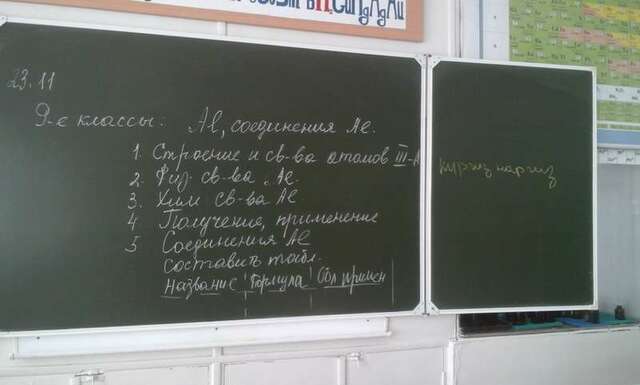 23.11
9-е классы: Al, соединения Al.
1. Строение и св-ва атомов III-А
2. Физ св-ва Al.
3. Хим св-ва Al
4. Получения, применение
5 Соединения Al
составить табл.
Название Формула Обл примен